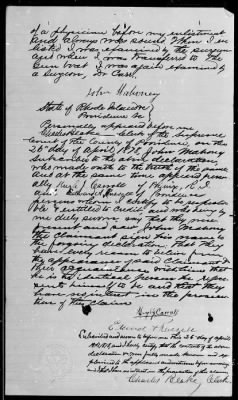 of a physician before my enlistment
and always was sound. When I en
listed I was examined by the surgeon
and when I was transferred to the
Gun boat I was again examined by
a surgeon, Dr
John Mahoney
State of Rhode Island
Providence Sc
Personally appeared before me
Charles Blake Clerk of the Supreme
Court of the County of Providence, on the
26th day of April 1878 John Mahoney
Subscriber to the above declaration
who made oath to the truth of the same
and at the same time appeared person
ally Hugh J Carroll of R. I.
and of
persons whom I certify to be respecta
ble & entitled to credit, and who being by
me duly sworn say that they were
present and saw John Mahoney
the Claimant sign his name to
the foregoing declaration; that they
have every reason to believe from
the appearance of said Claimant &
their acquaintance with him that
he is the identical person he repre
sents himself to be and that they
have no interest in the prosecu
tion of this claim
Hugh J Carroll
Subscribed and sworn to before me this 26th day of April
1878, and I hereby certify that the contents of the above
declaration &c. were fully made known and ex
plained to the applicant and witnesses before swearing
and that I have no interest in the prosecution of this claim
Charles Blake Clerk.